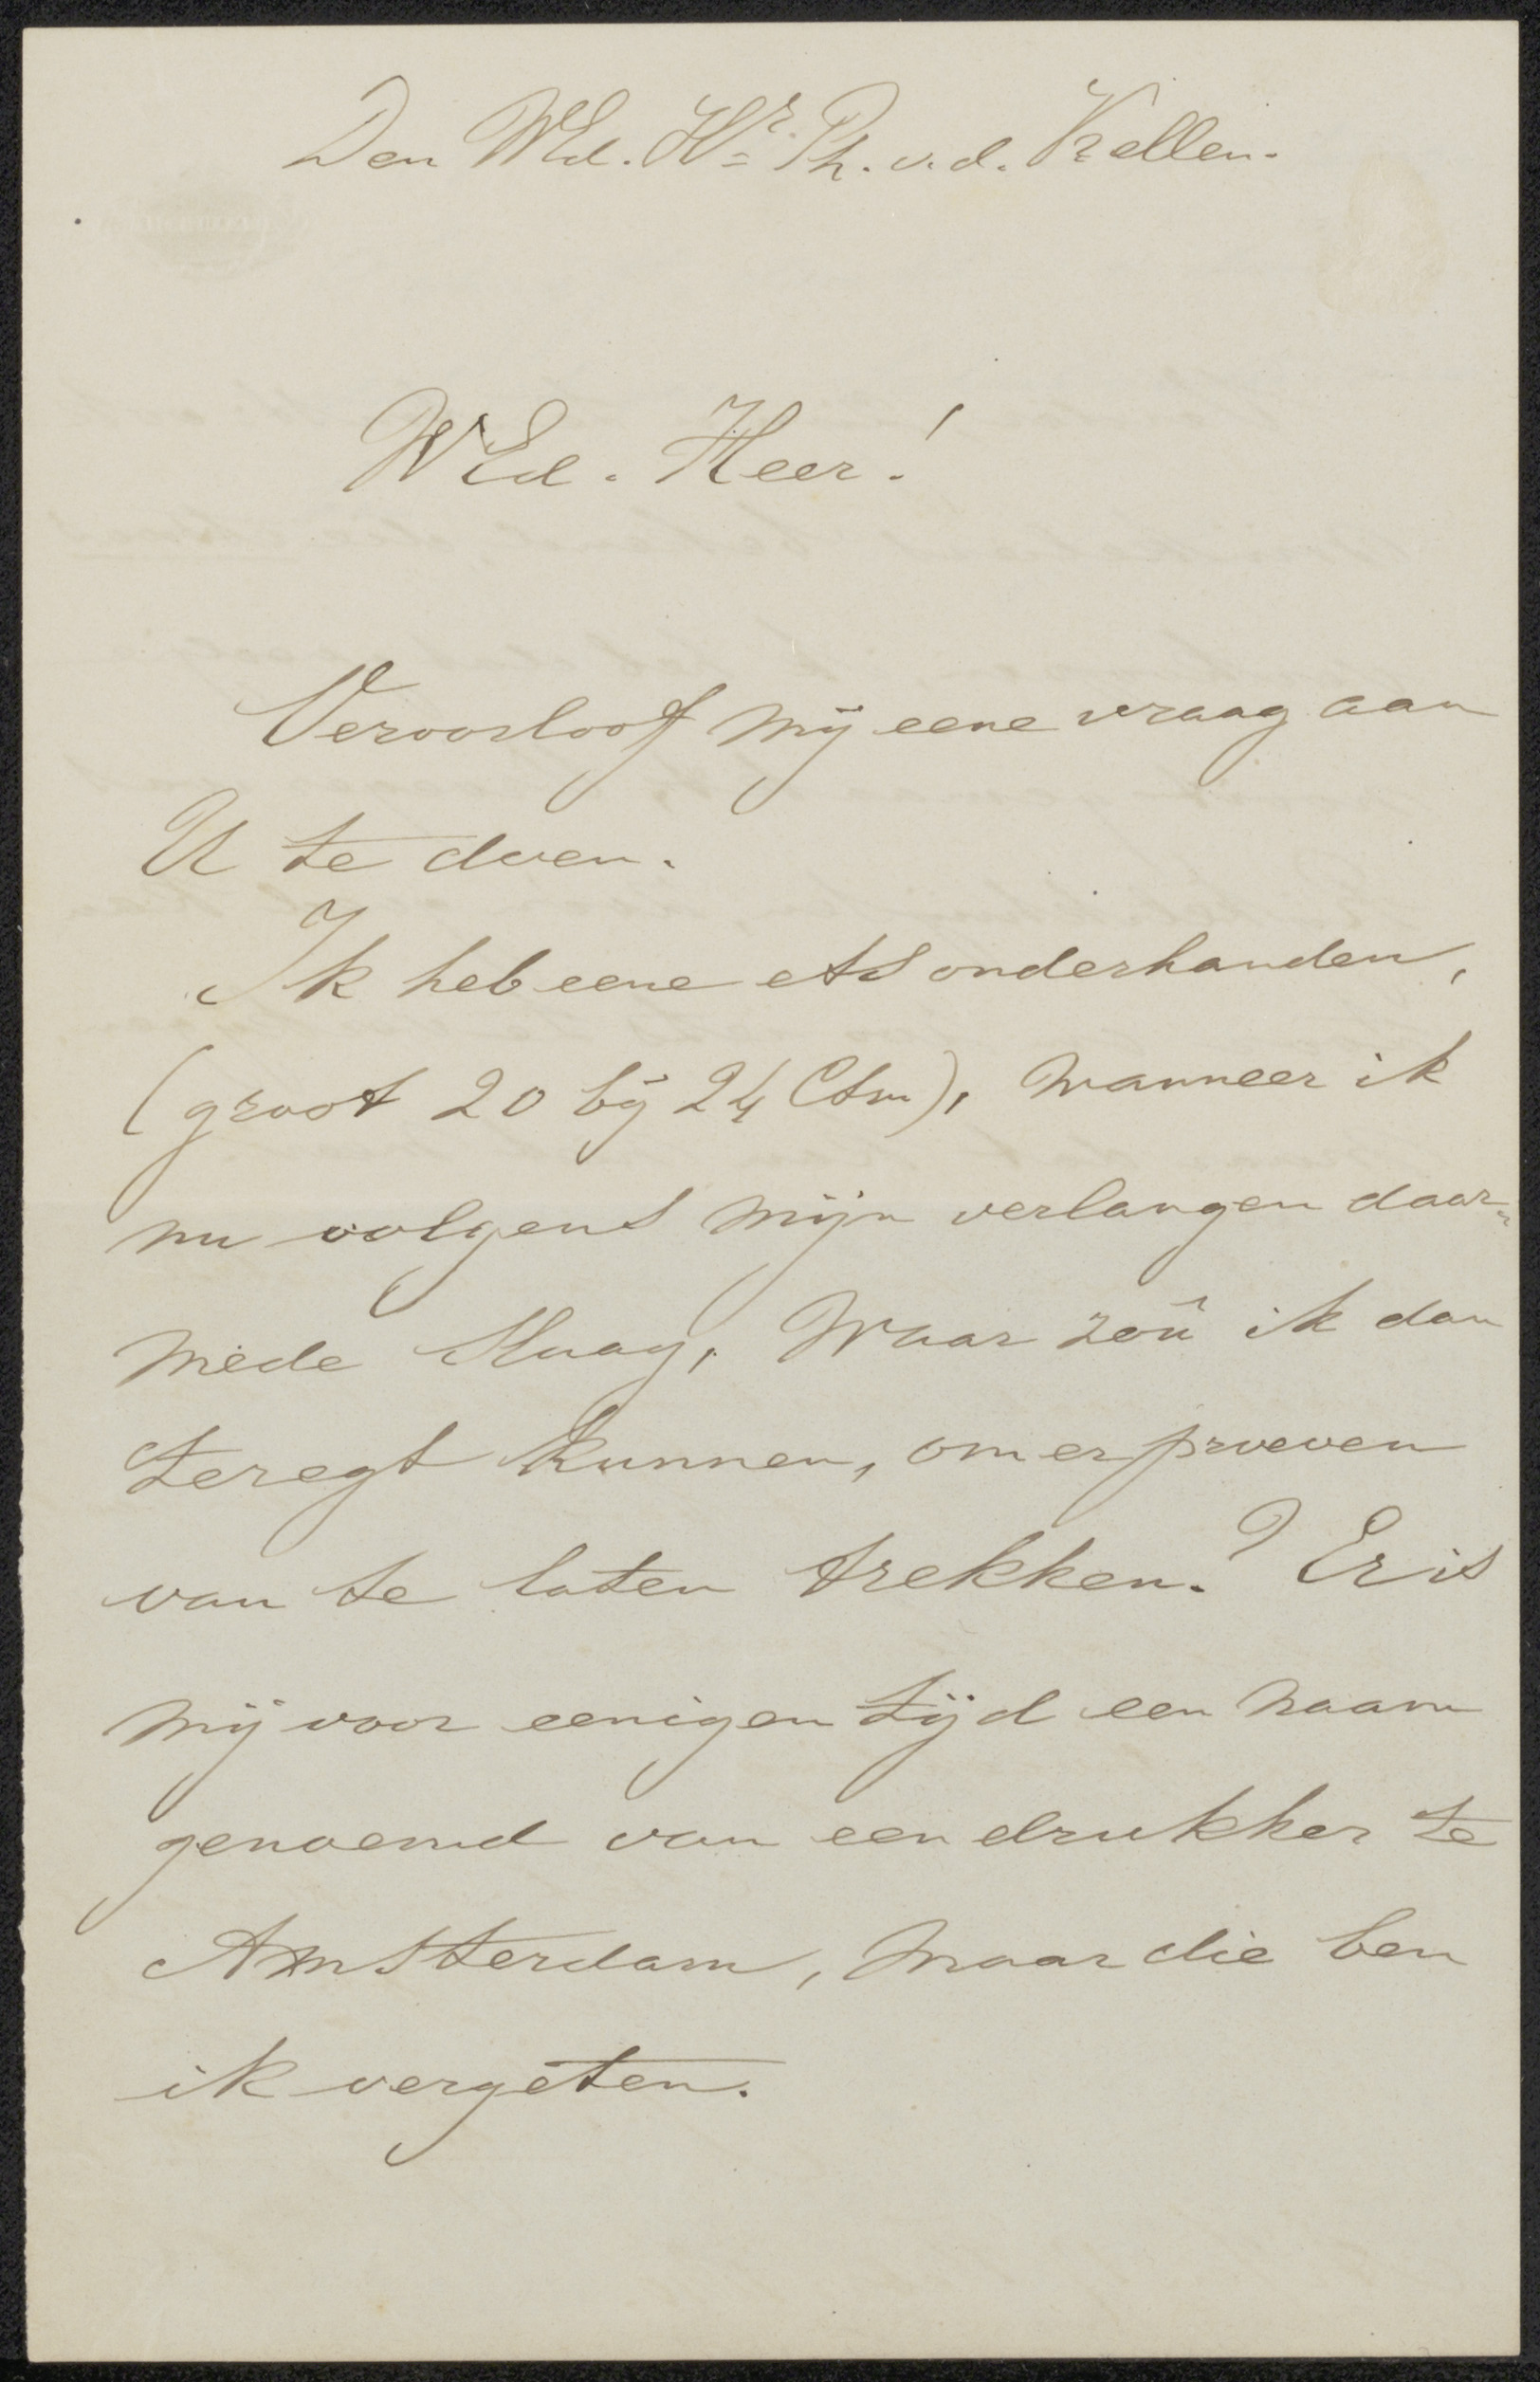 Den WEd. Hr. Ph. v. d. Kellen.
WEd. Heer!
Veroorloof mij eene vraag aan
U te doen.
Ik heb eene ets onderhanden,
(groot 20 bij 24 Ctm), wanneer ik
nu volgens mijn verlangen daar-
mede slaag, waar zoû ik dan
teregt kunnen, om er proeven
van te laten trekken? Er is
mij voor eenigen tijd een naam
genoemd van een drukker te
Amsterdam, maar die ben
ik vergeten.